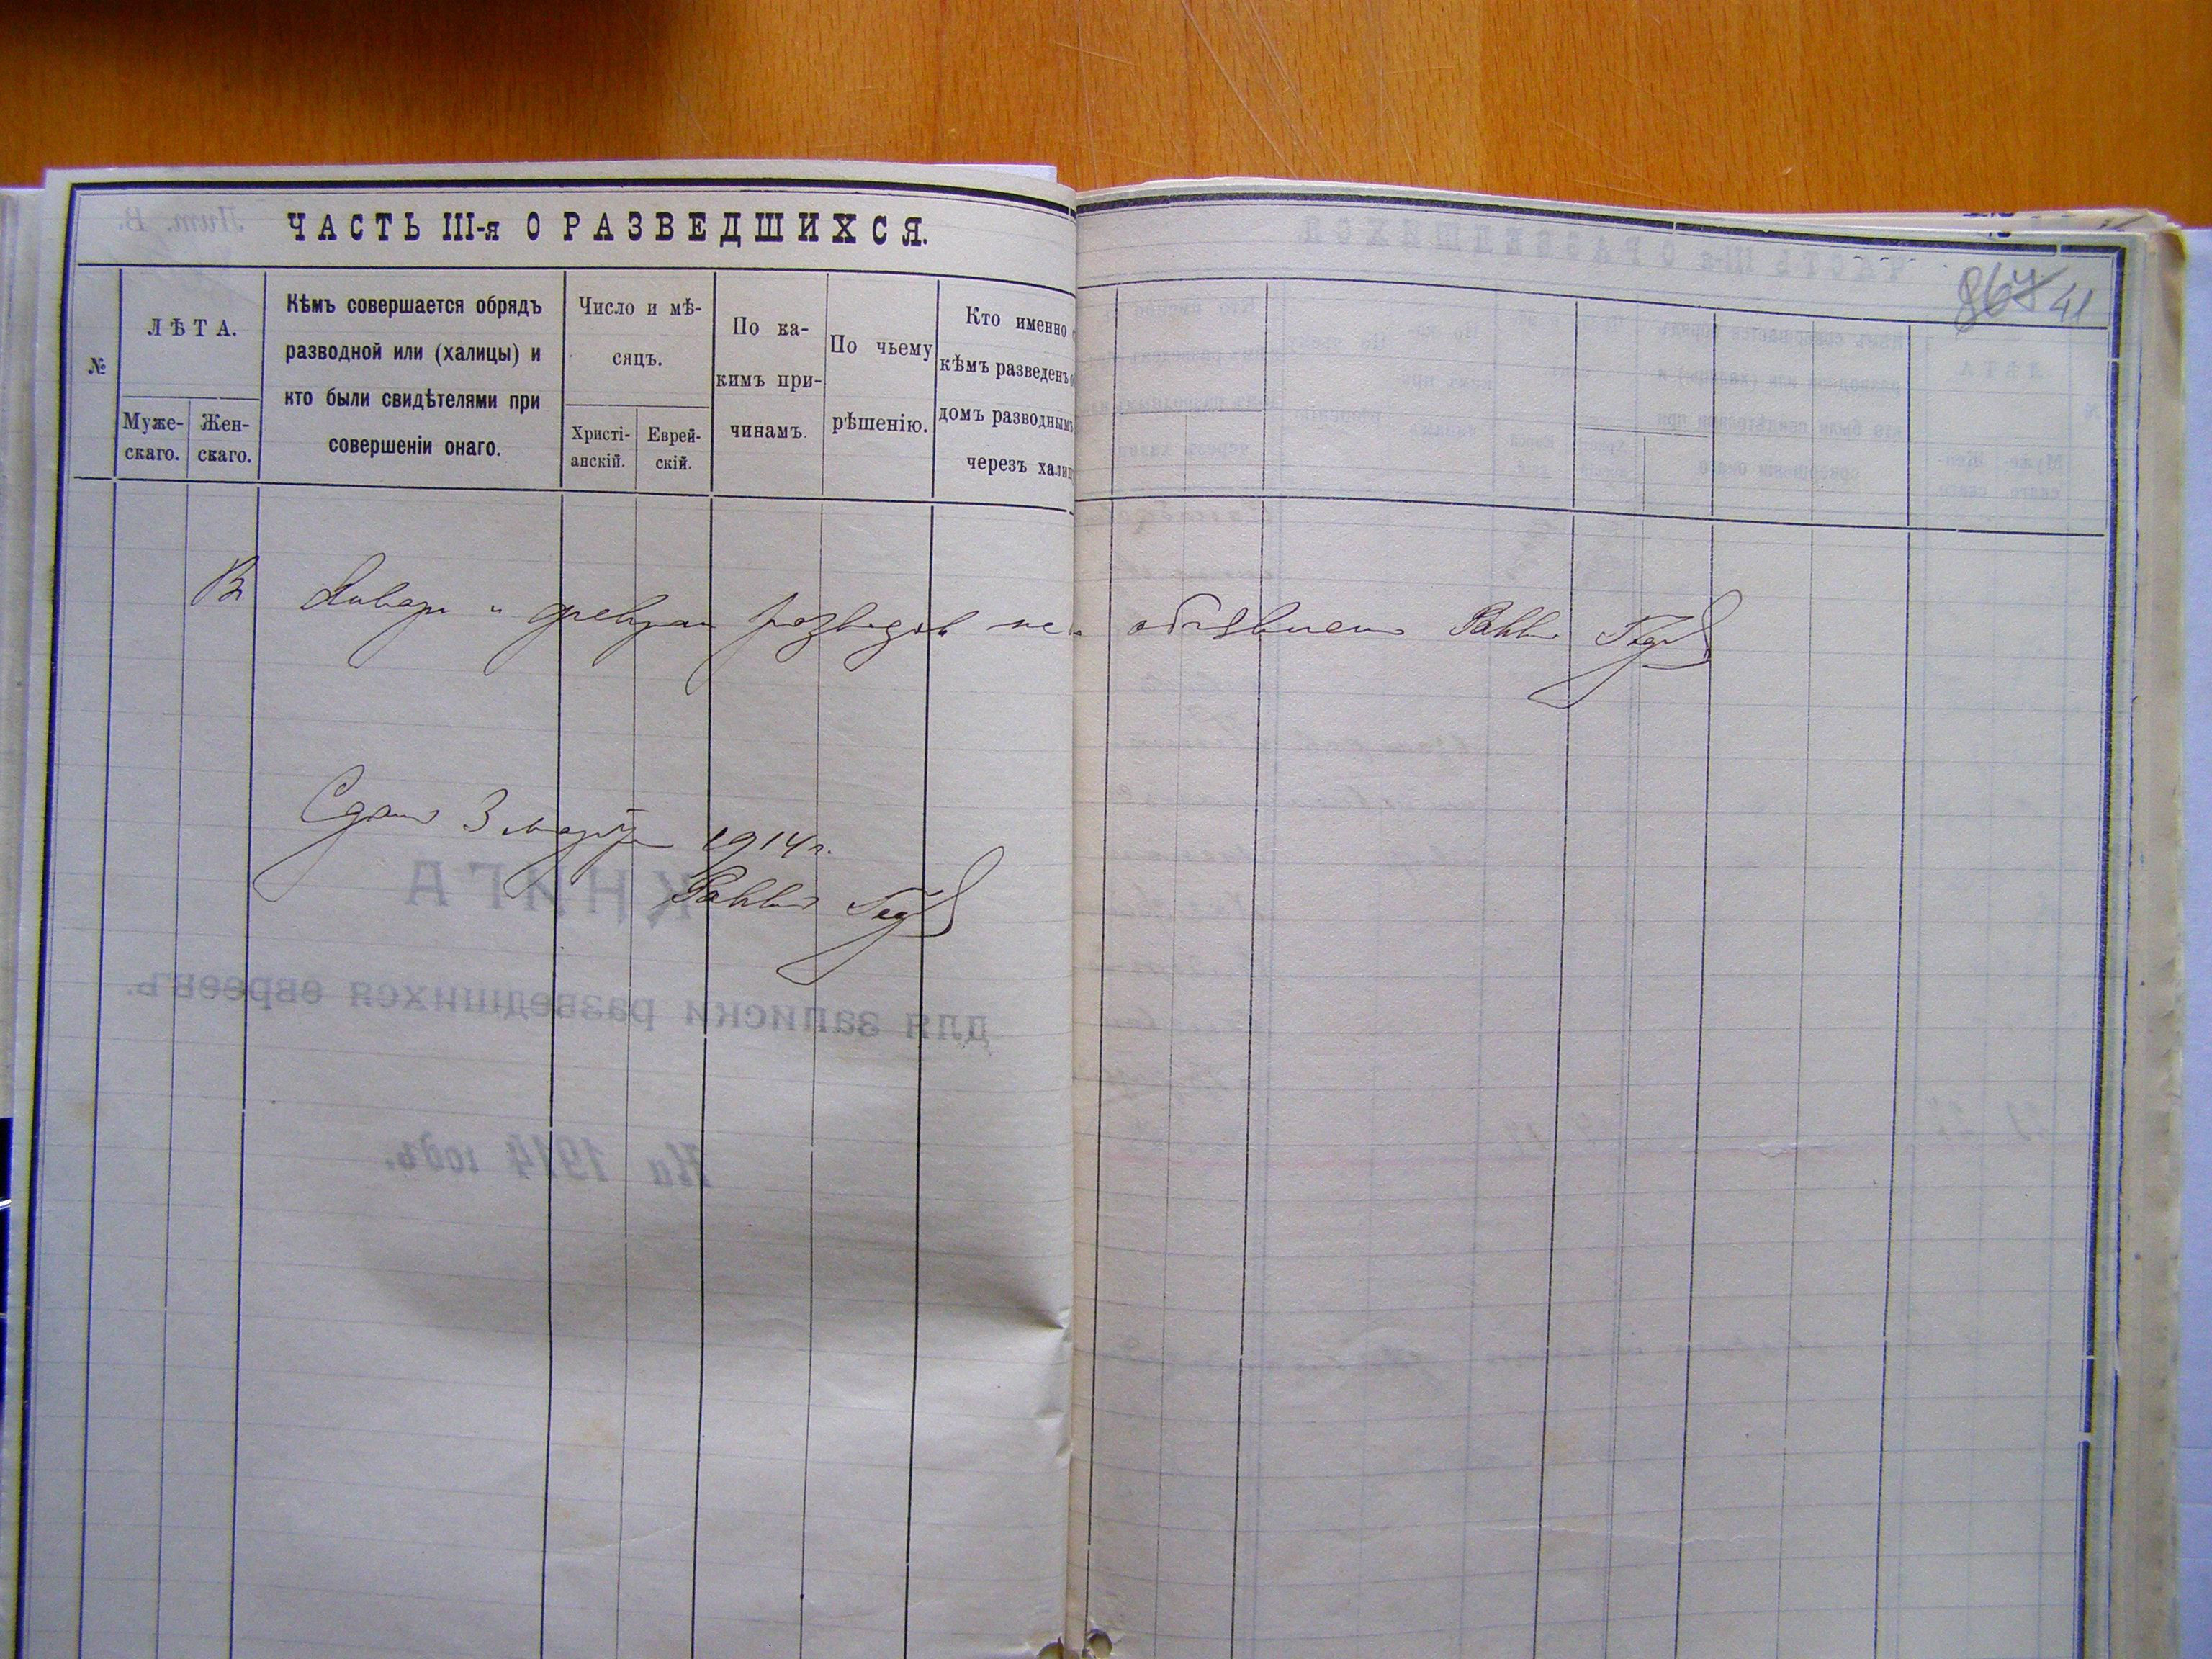 ЧАСТЬ III-я О РАЗВЕДШИХСЯ.
№
ЛѢТА.
Муже-
скаго.
Жен-
скаго.
Кѣмъ совершается обрядъ
разводной или (халицы) и
кто были свидѣтелями при
совершеніи онаго.
Число и мѣ-
сяцъ.
Христі-
анскій.
Еврей-
скій.
По ка-
кимъ при-
чинамъ.
По чьему
рѣшенію.
Кто именно
кѣмъ разведенъ
домъ разводнымъ
черезъ
867 41
В Январе и феврале разводов не объявлено
Сдано 3 марта 1914 г.
КНИГА
для записки разведшихся евреевъ.
На 1914 годъ.